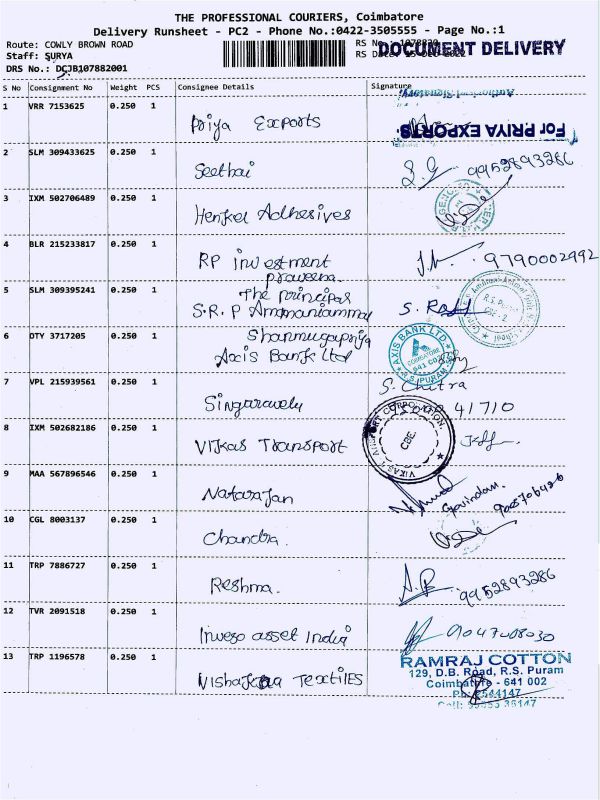 THE PROFESSIONAL COURIERS, Coimbatore
Delivery Runsheet - PC2 - Phone No.:0422-3505555 - Page No.:1
Route: COWLY BROWN ROAD
Staff: SURYA
DRS No.: DCJB107882001
RS No
RS Date
DOCUMENT DELIVERY
S No Consignment No Weight PCS Consignee Details Signature
1 VRR 7153625 0.250 1
Priya Exports
For PRIYA EXPORTS.
2 SLM 309433625 0.250 1
Seethai 9952893286
3 IXM 502706489 0.250 1
Henkel Adhesives
4 BLR 215233817 0.250 1
RP investment 9790002992
praveena
5 SLM 309395241 0.250 1
The principal
S.R.P Ammaniammal
6 OTY 3717205 0.250 1
Shanmugapriya
Axis Bank Ltd
AXIS BANK LTD
COIMBATORE
7 VPL 215939561 0.250 1
S. Chitra
Singaravelu 41710
8 IXM 502682186 0.250 1
Vikas Transport
CBE.
9 MAA 567896546 0.250 1
Natarajan
Govindam.
10 CGL 8003137 0.250 1
Chandra.
11 TRP 7886727 0.250 1
Reshma. 9952893286
12 TVR 2091518 0.250 1
Inveso asset India 9047408030
13 TRP 1196578 0.250 1
Textiles
RAMRAJ COTTON
129, D.B. Road, R.S. Puram
Coimbatore - 641 002